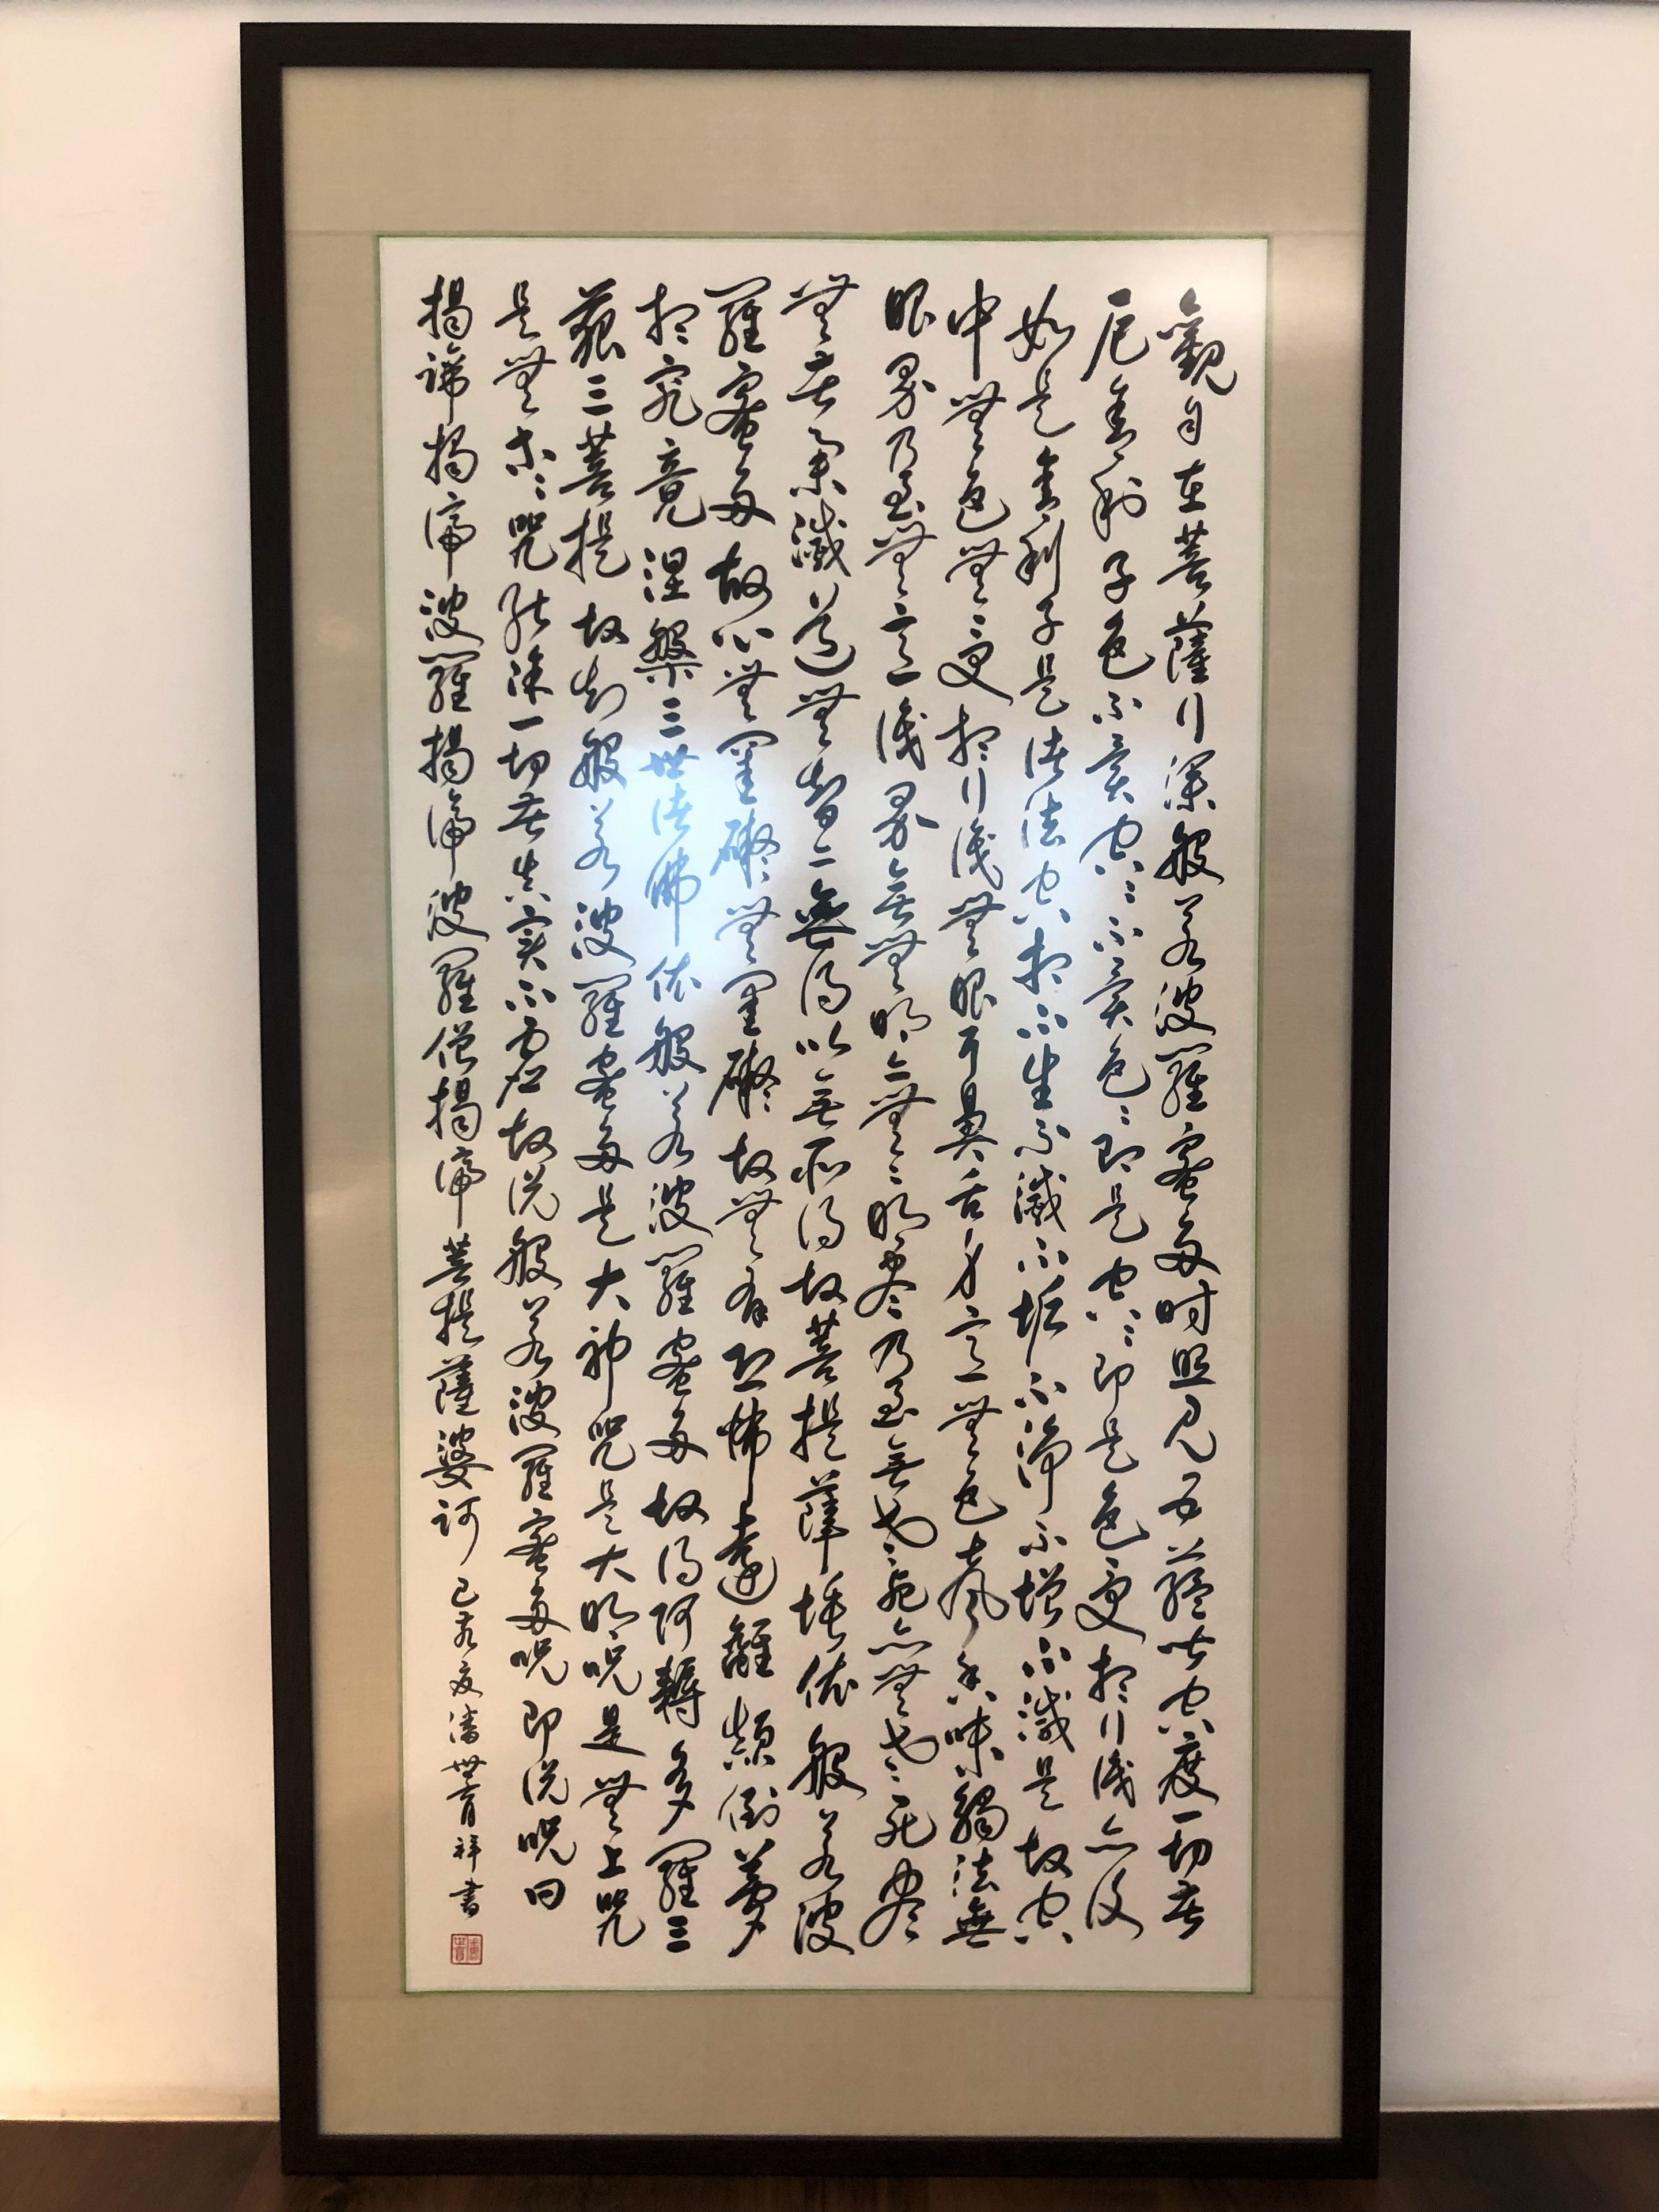 觀自在菩薩行深般若波羅蜜多時照見五蘊皆空度一切苦
厄舍利子色不異空〻不異色〻即是空〻即是色受想行識亦復
如是舍利子是諸法空相不生不滅不垢不淨不增不減是故空
中無色無〻受想行識無眼耳鼻舌身意無色聲香味觸法無
眼界乃至無意識界無無明亦無〻明盡乃至無老〻死亦無老〻死盡
無苦集滅道無智亦無得以無所得故菩提薩埵依般若波
羅蜜多故心無罣礙無罣礙故無有恐怖遠離顛倒夢
想究竟涅槃三世諸佛依般若波羅蜜多故得阿耨多羅三
藐三菩提故知般若波羅蜜多是大神咒是大明咒是無上咒
是無等〻咒能除一切苦真實不虛故說般若波羅蜜多咒即說咒曰
揭諦揭諦波羅揭諦波羅僧揭諦菩提薩婆訶 己亥夏潘世祥書